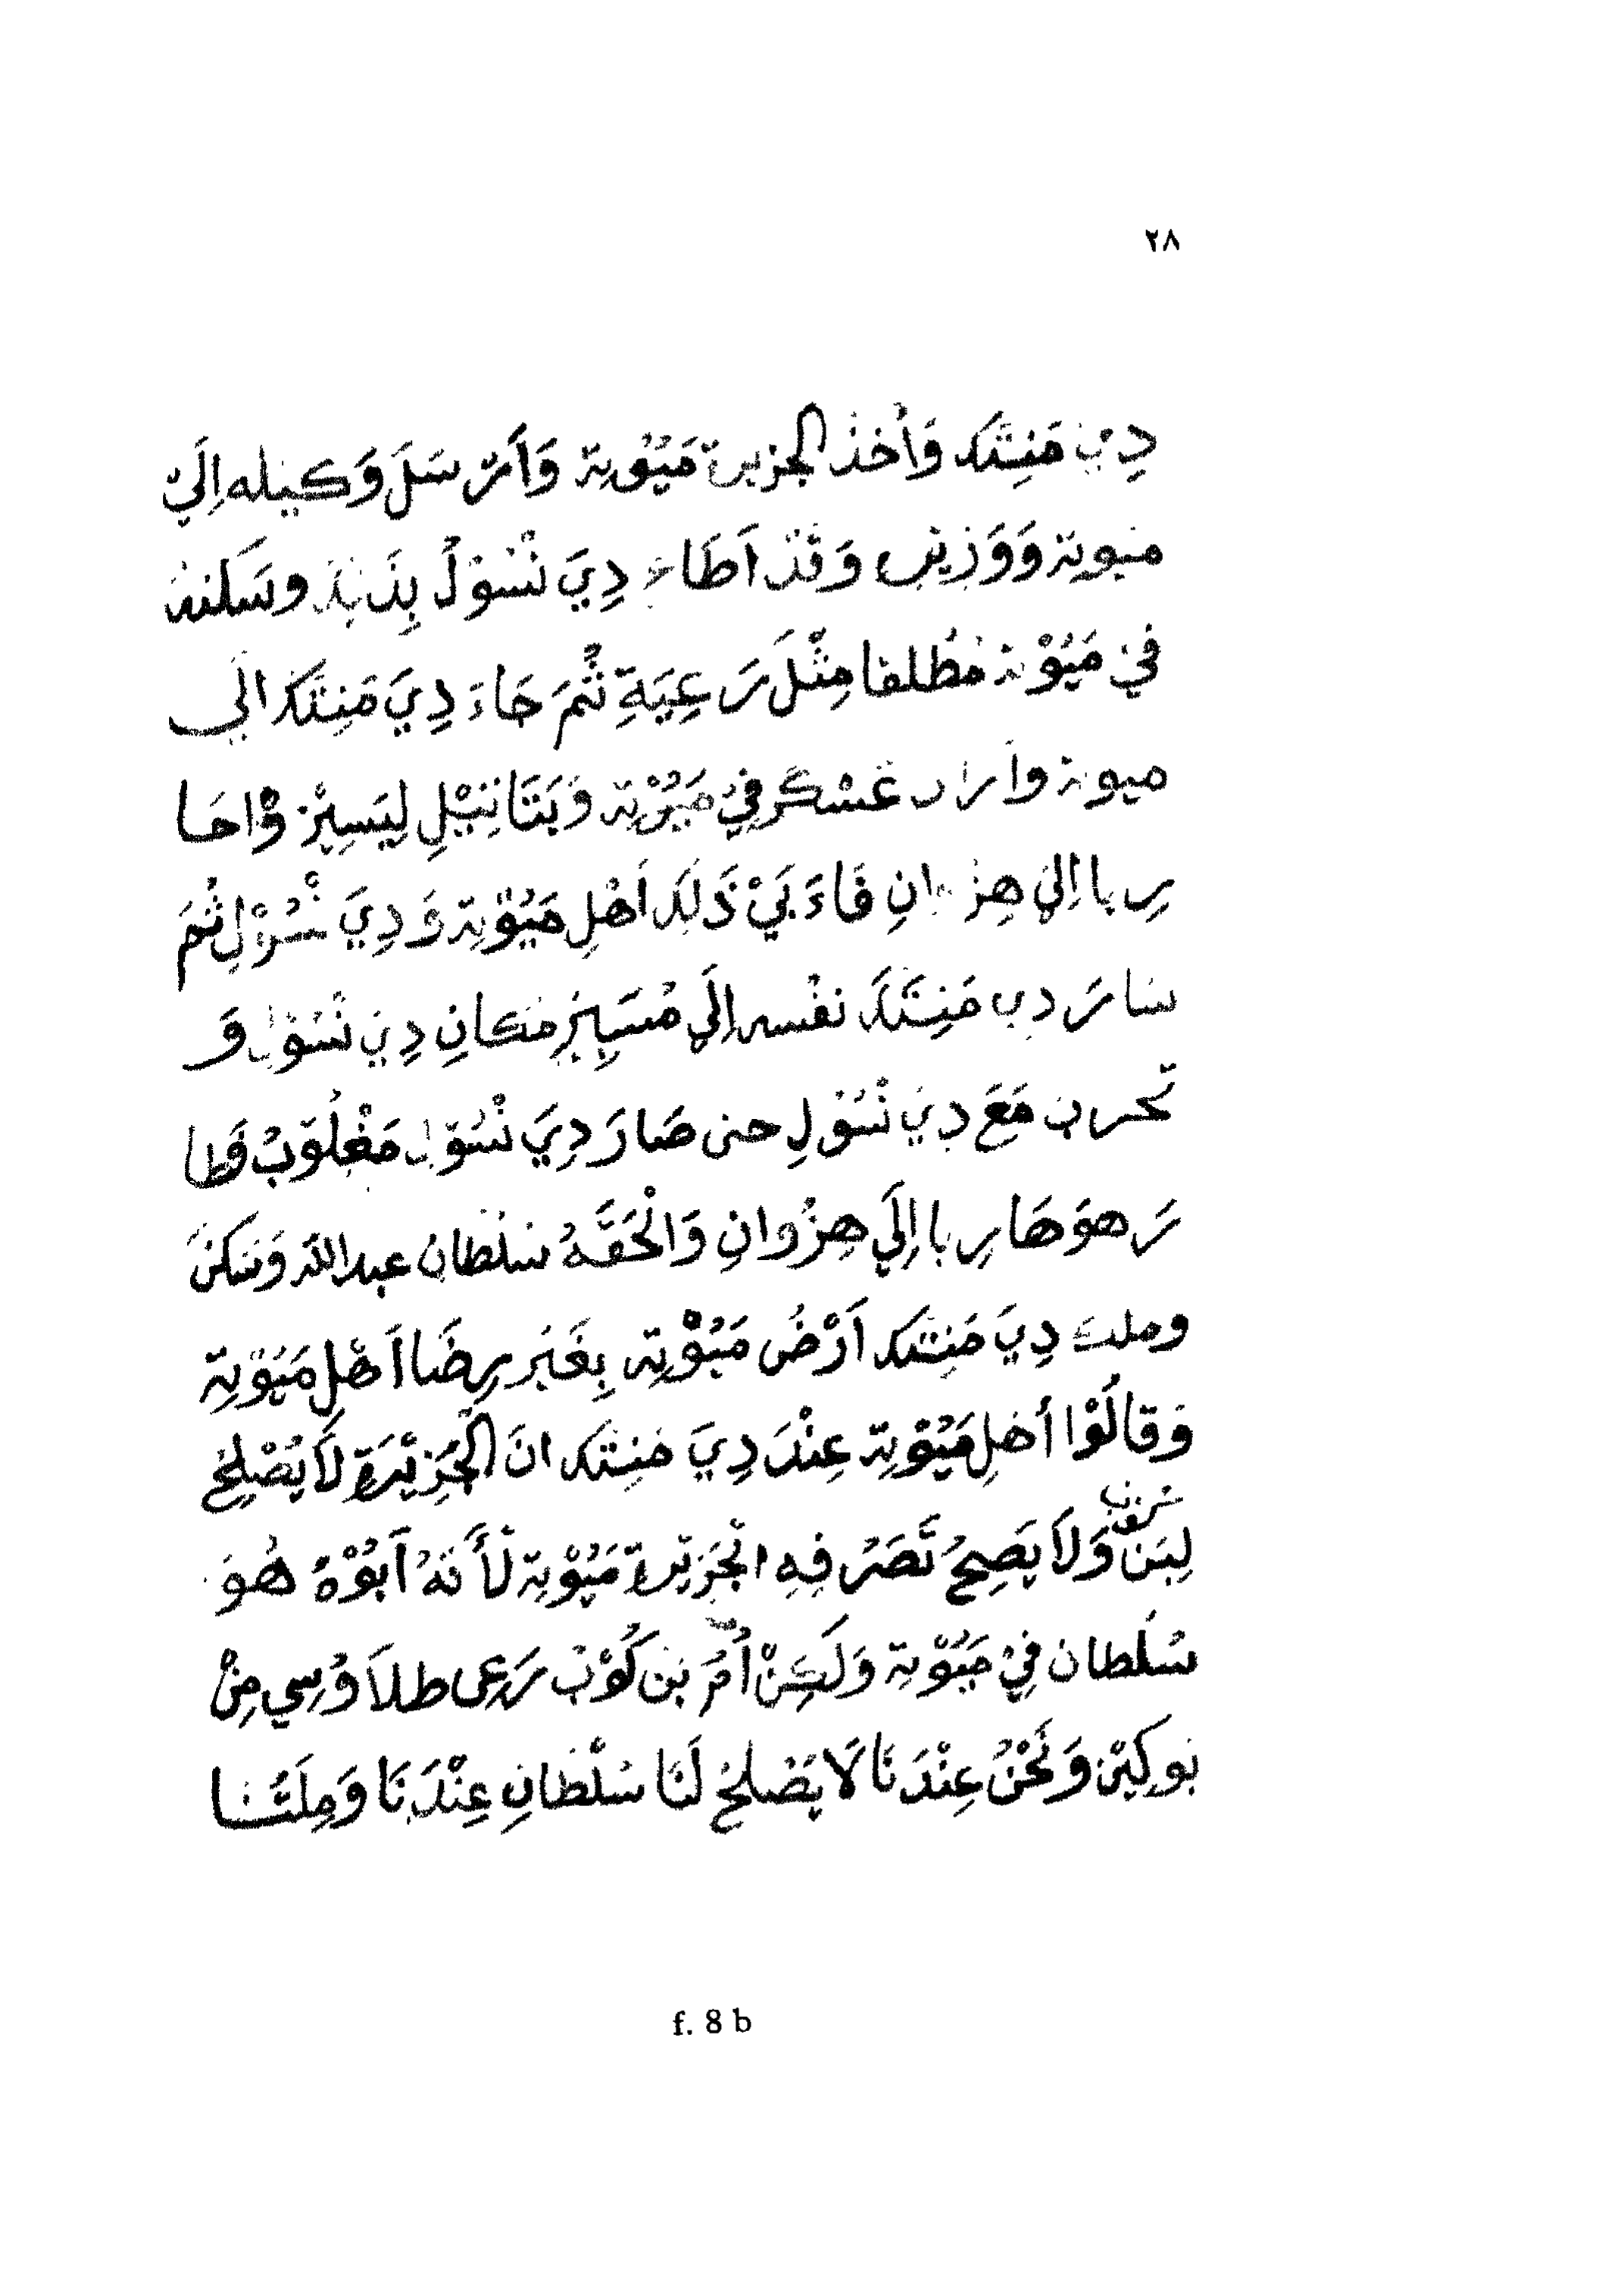 ٢٨
دِيَ مَنِتَكَ وَأَخَذَ الجزيرة مَيُوْتِة وَأَرْسَلَ وَكيله اِلَيْ
ميوتة وَوَزِيْر وَقَدْ اَطَاع دِيَ نْسُوْلْ وسَكَنَ
فيْ مَيُوْتة مُطلقا مِثْلَ رَعِيَةِ ثُمَ جَاءَ دِيَ مَنِتَكَ الَي
ميوتة واراد عَسْكَر فِيْ مَيُوْتِة لِيَسِيْرْ
اِلَي هِزْوانِ ذَلِكَ اَهْلِ مَيُوْتِة وَ دِيَ نْسُوْلِ ثُمَ
سَارَ دي مَنِتَكَ نفْسه اِلَي مْسَبِيْزِ مَكانِ دِيَ نْسُوْلِ وَ
تحرب مَعَ دِيَ نْسُوْلِ حتى صَارَ دِيَ نْسُوْلِ مَغْلُوْبْ فَطا
رَ هوَ هَارِبا اِلَي هِزْوانِ وَالْحَقَهُ سُلْطان عبد اللّه وَسَكَنَ
وملك دِيَ مَنِتَكَ اَرْضُ مَيُوْتِة بِغَيْرِ رِضَا اَهْلِ مَيُوْتِة
وَقالُوْا أهلِ مَيُوْتِة عِنْدَ دِيَ مَنِتَكَ انَ الجَزِيْرَة لَا يُصْلِحُ
وَلَا يَصِحُ تَصَرُفِهِ الجَزِيْرة مَيُوْتِة لأَنَهُ اَبُوْهُ هُوَ
سُلطان فِيْ مَيُوْتة وَلَكِنْ اُمُر بن
بوكِيْن وَنَحْنُ عِنْدَنَا لَا يَصْلحُ لَنَا سُلْطانِ عِنْدَنَا وَمِلَتُنا
f. 8 b